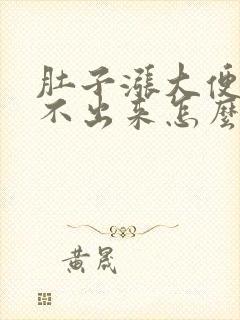 肚子漲大便
不出来怎麼
黄晟